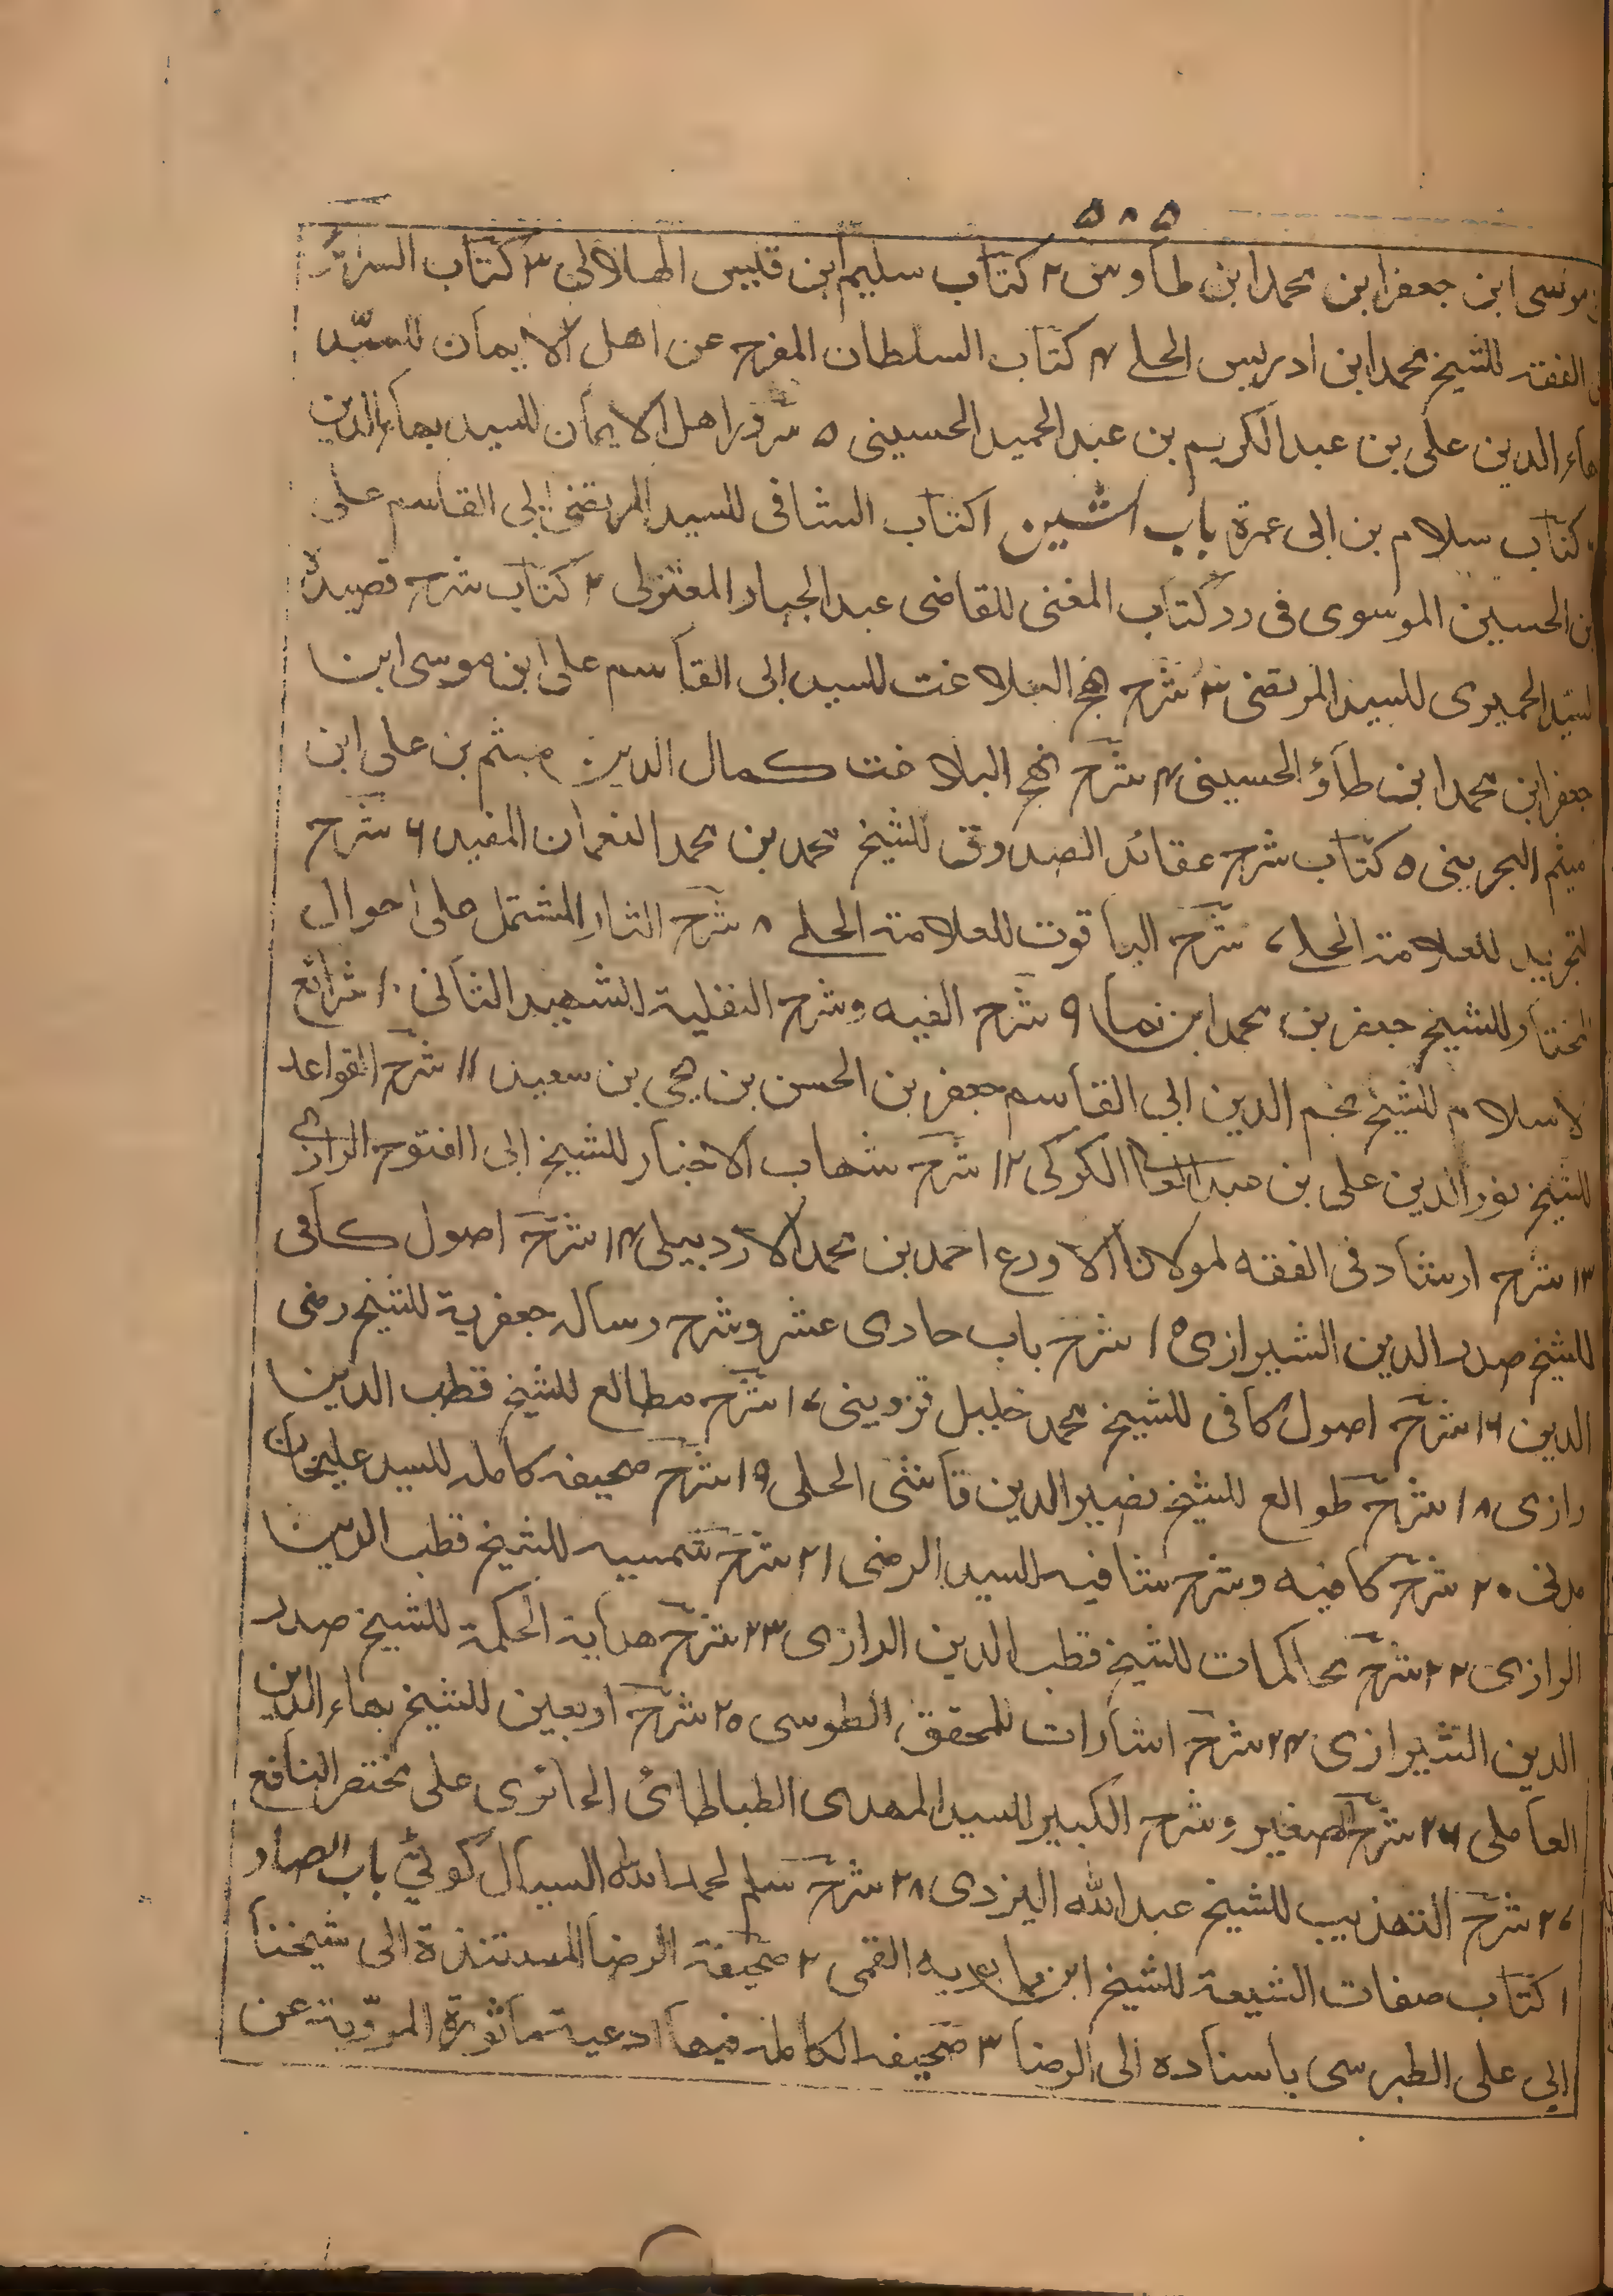 ۵۸۵
موسی ابن جعفر ابن محمد ابن طاوس ۲ کتاب سلیم ابن قلیس الهلالی ۳ کتاب السرائر
الفقه للشیخ محمد ابن ادریس الحلے ۴ کتاب السلطان المفرح عن اهل الایمان للسیّد
بهاء الدین علی بن عبد الکریم بن عبد الحمید الحسینی ۵ سرور اهل الایمان للسید بهاء الدین
کتاب سلام بن ابی عمرة باب الشین ۱ کتاب الشافی للسید المرتضی ابی القاسم علی
بن الحسین الموسوی فی رد کتاب المغنی للقاضی عبد الجبار المعتزلی ۲ کتاب شرح قصیدة
السیّد الحمیری للسید المرتضی ۳ شرح نهج البلاغت للسید ابی القاسم علی ابن موسی ابن
جعفر ابن محمد ابن طاؤ الحسینی ۴ شرح نهج البلاغت کمال الدین میثم بن علی ابن
میثم البحرینی ۵ کتاب شرح عقائد الصدوق للشیخ محمد بن محمد النعمان المفید ۶ شرح
لتجرید للعلامة الحلے ۷ شرح الیاقوت للعلامة الحلے ۸ شرح الثار المشتمل علی احوال
المختار للشیخ جعفر بن محمد ابن نما ۹ شرح الفیه وشرح النفلیة للشهید الثانی ۱۰ شرائع
لاسلام للشیخ نجم الدین ابی القاسم جعفر بن الحسن بن یحیی بن سعید ۱۱ شرح القواعد
للشیخ نور الدین علی بن عبد العا الکرکی ۱۲ شرح شهاب الاخبار للشیخ ابی الفتوح الرازی
۱۳ شرح ارشاد فی الفقه لمولانا الاورع احمد بن محمد الاردبیلی ۱۴ شرح اصول کافی
للشیخ صدر الدین الشیرازی ۱۵ شرح باب حادی عشر وشرح رساله جعفریة للشیخ رضی
الدین ۱۶ شرح اصول کافی للشیخ محمد خلیل قزوینی ۱۷ شرح مطالع للشیخ قطب الدین
رازی ۱۸ شرح طوالع للشیخ نصیر الدین قاشی الحلی ۱۹ شرح صحیفه کامله للسید علیخان
مدنی ۲۰ شرح کافیه وشرح شافیه للسید الرضی ۲۱ شرح شمسیه للشیخ قطب الدین
الرازی ۲۲ شرح محاکمات للشیخ قطب الدین الرازی ۲۳ شرح هدایة الحکمة للشیخ صدر
الدین الشیرازی ۲۴ شرح اشارات للمحقق الطوسی ۲۵ شرح اربعین للشیخ بهاء الدین
العاملی ۲۶ شرح الصغیر وشرح الکبیر للسید المهدی الطباطبائی الحائری علی مختصر النافع
۲۷ شرح التهذیب للشیخ عبد الله الیزدی ۲۸ شرح سلم لحمد الله السیال کوٹی باب الصاد
۱ کتاب صفات الشیعة للشیخ ابن بابویه القمی ۲ صحیفة الرضا المستندة الی شیخنا
ابی علی الطبرسی باسناده الی الرضا ۳ صحیفه الکامله فیها ادعیة ماثورة المرویة عن